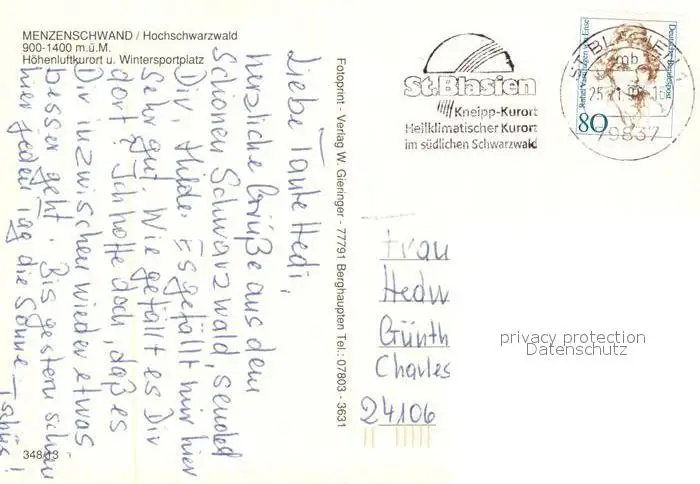 MENZENSCHWAND / Hochschwarzwald
900-1400 m.ü.M.
Höhenluftkurort u. Wintersportplatz
Liebe Tante Hedi,
herzliche Grüße aus dem
schönen Schwarzwald, sendet
Dir, Hilde. Es gefällt mir hier
sehr gut. Wie gefällt es Dir
dort? Ich hoffe doch, daß es
Dir inzwischen wieder etwas
besser geht. Bis gestern schien
hier jeden Tag die Sonne –
Tschüs!
348/13
Fotoprint - Verlag W. Gieringer - 77791 Berghaupten Tel.: 07803 - 3631
St.Blasien
Kneipp-Kurort
Heilklimatischer Kurort
im südlichen Schwarzwald
ST BLASIEN 1
mb
79837
Deutsche Bundespost
Rahel Varnhagen von Ense
80
Frau
Hedw
Günth
Charles
24106
privacy protection
Datenschutz